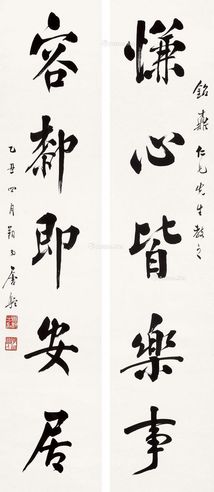 銘彝仁兄先生教之
慊心皆樂事
容厀即安居
乙丑四月唐駝